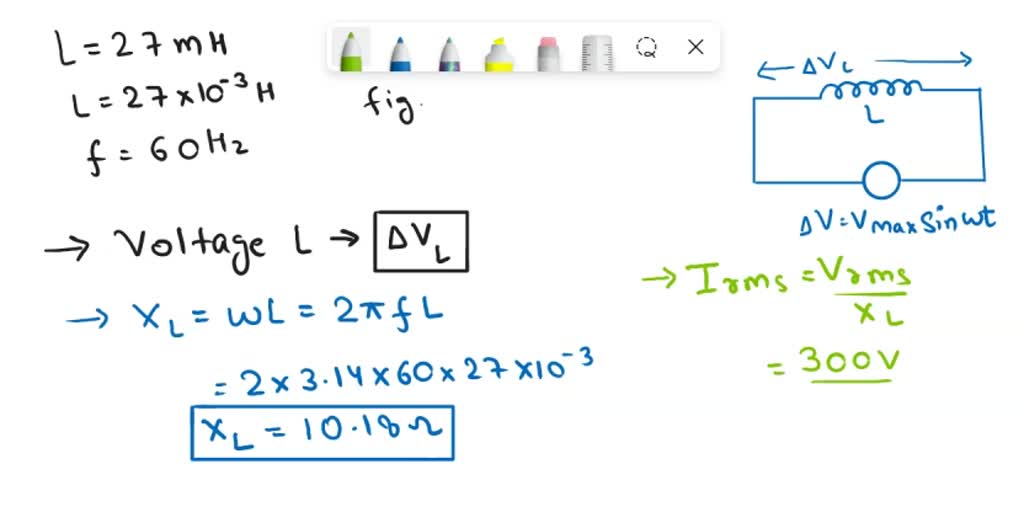 L = 27 mH
L = 27 × 10⁻³ H
f = 60 Hz
fig.
ΔV_L
L
ΔV = V max Sin wt
→ Voltage L → ΔV_L
→ X_L = wL = 2π f L
= 2 × 3.14 × 60 × 27 × 10⁻³
X_L = 10.18 Ω
→ I rms = V rms / X_L
= 300V